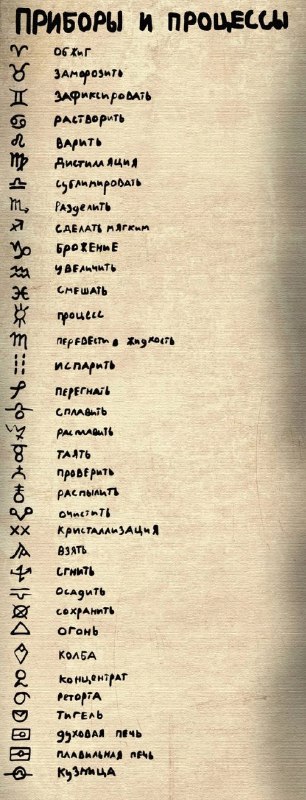 Приборы и процессы
♈ обжиг
♉ заморозить
♊ зафиксировать
♋ растворить
♌ варить
♍ дистилляция
♎ сублимировать
♏ разделить
♐ сделать мягким
♑ брожение
♒ увеличить
♓ смешать
процесс
перевести в жидкость
испарить
перегнать
сплавить
расплавить
таять
проверить
распылить
очистить
кристаллизация
взять
сгнить
осадить
сохранить
огонь
колба
концентрат
реторта
тигель
духовая печь
плавильная печь
кузница